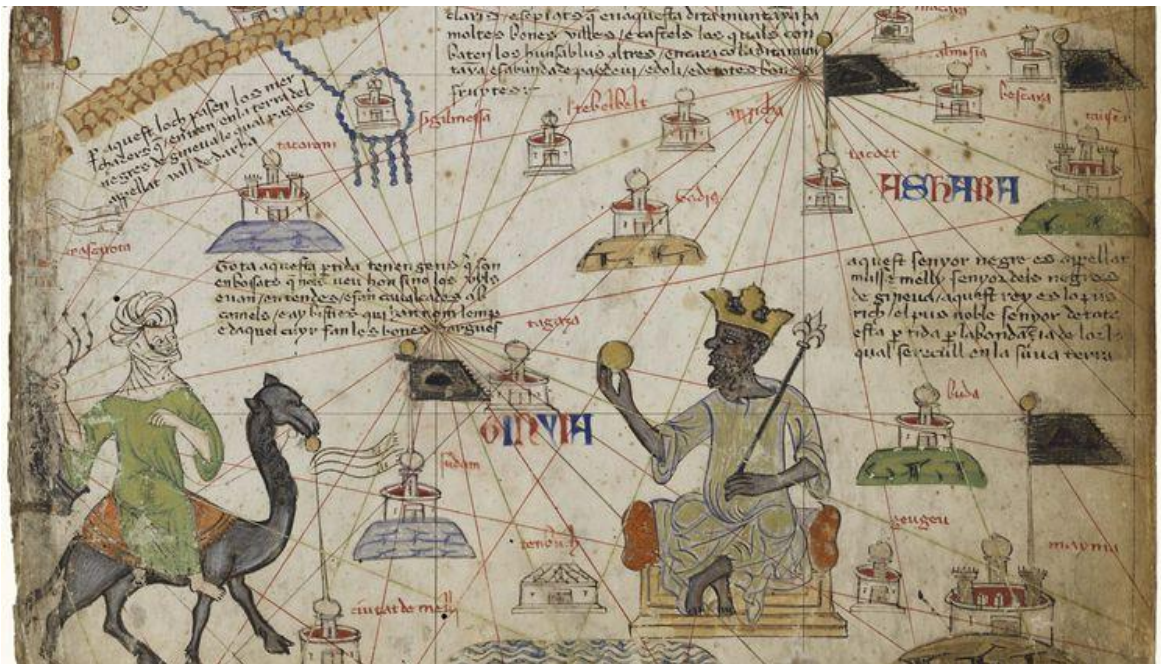 moltes bones villes / e castels los q̃ tals con
baten los huns ab lus altres / encara co la dita mun
tãya es abundade pa de vi / e doli / e de totes bon
fruytes :~
P aquest loch pasen los mer
chaders q̃ entren en la terra del
negres de gineua lo qual pas es
appellat vall de darha
sigilmessa
tebelbelt
almesia
bescara
tacoroni
tacort
ASHARA
Tota aquesta ptida tenen gens q̃ son
enbosats q̃ nols veu hom sino los vyls
e uan en tendes / e fan caualcades ab
camels / e ay bisties qui han nom lemp
e daquel cuyr fan les bones dargues
aquest senyor negre es appellat
musse melly senyor dels negres
de gineua / aquest rey es lo pus
rich / el pus noble senyor de tota
esta ptida p labondançia de lor lo
qual se recull en la suua terra
tagaza
GINYIA
buda
sudam
tenbuch
geugeu
mayma
ciutat de melly